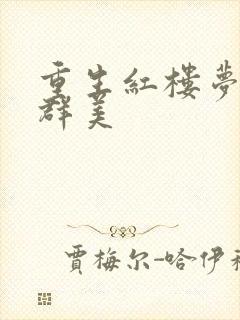 重生紅樓夢
群美
賈梅尔-哈伊